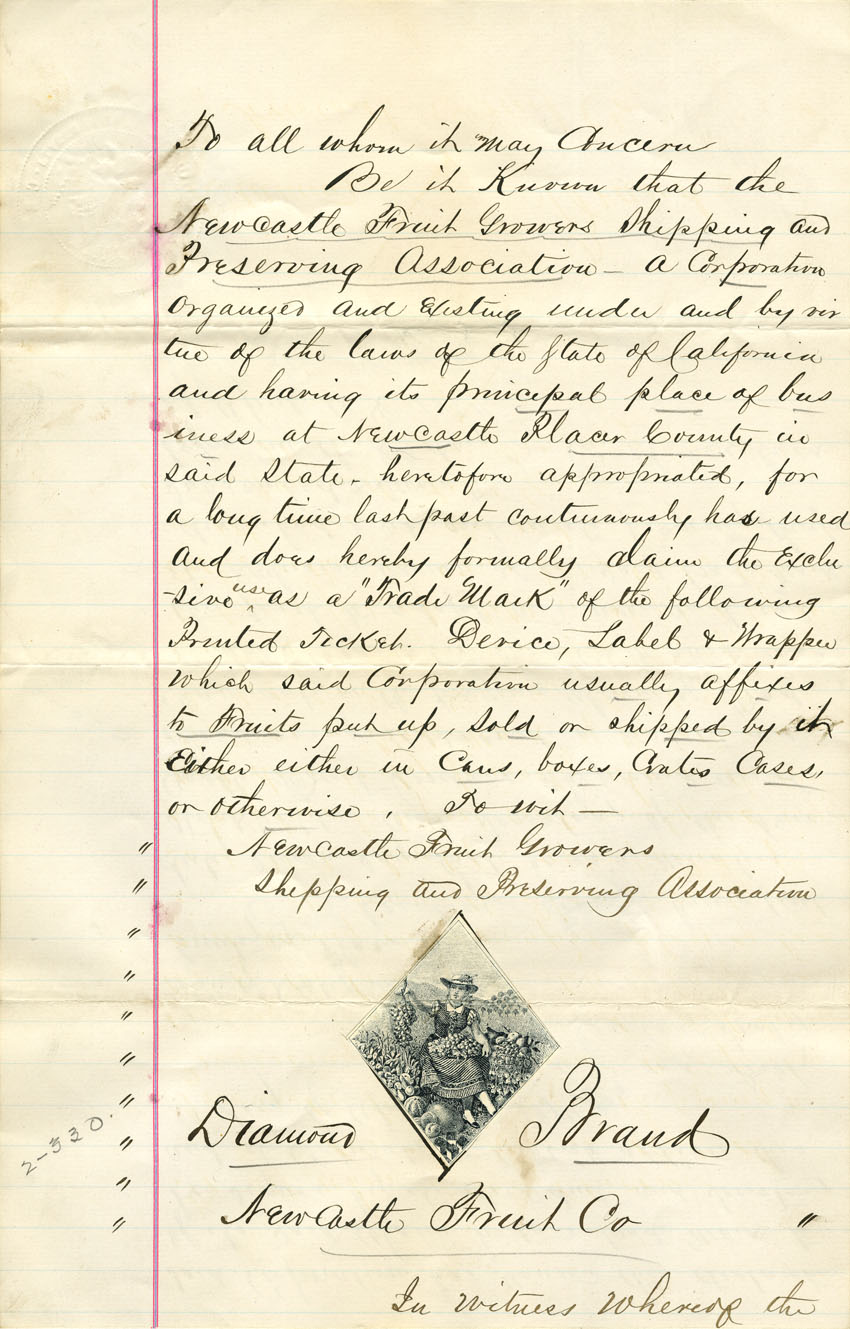 To all whom it may Concern
Be it Known that the
Newcastle Fruit Growers Shipping and
Preserving Association - a Corporation
organized and Existing under and by vir
tue of the laws of the State of California
and having its principal place of bus
iness at Newcastle Placer County in
said State - heretofore appropriated, for
a long time last past continuously has used
and does hereby formally claim the Exclu
-sive use as a "Trade Mark" of the following
Printed Ticket. Device, Label & Wrapper
which said Corporation usually affixes
to Fruits put up, sold or shipped by it
Either either in Cans, boxes, Crates Cases,
or otherwise, To wit —
" Newcastle Fruit Growers
" Shipping and Preserving Association
"
"
"
"
"
" Diamond Brand
2-330.
"
" Newcastle Fruit Co "
In Witness Whereof the